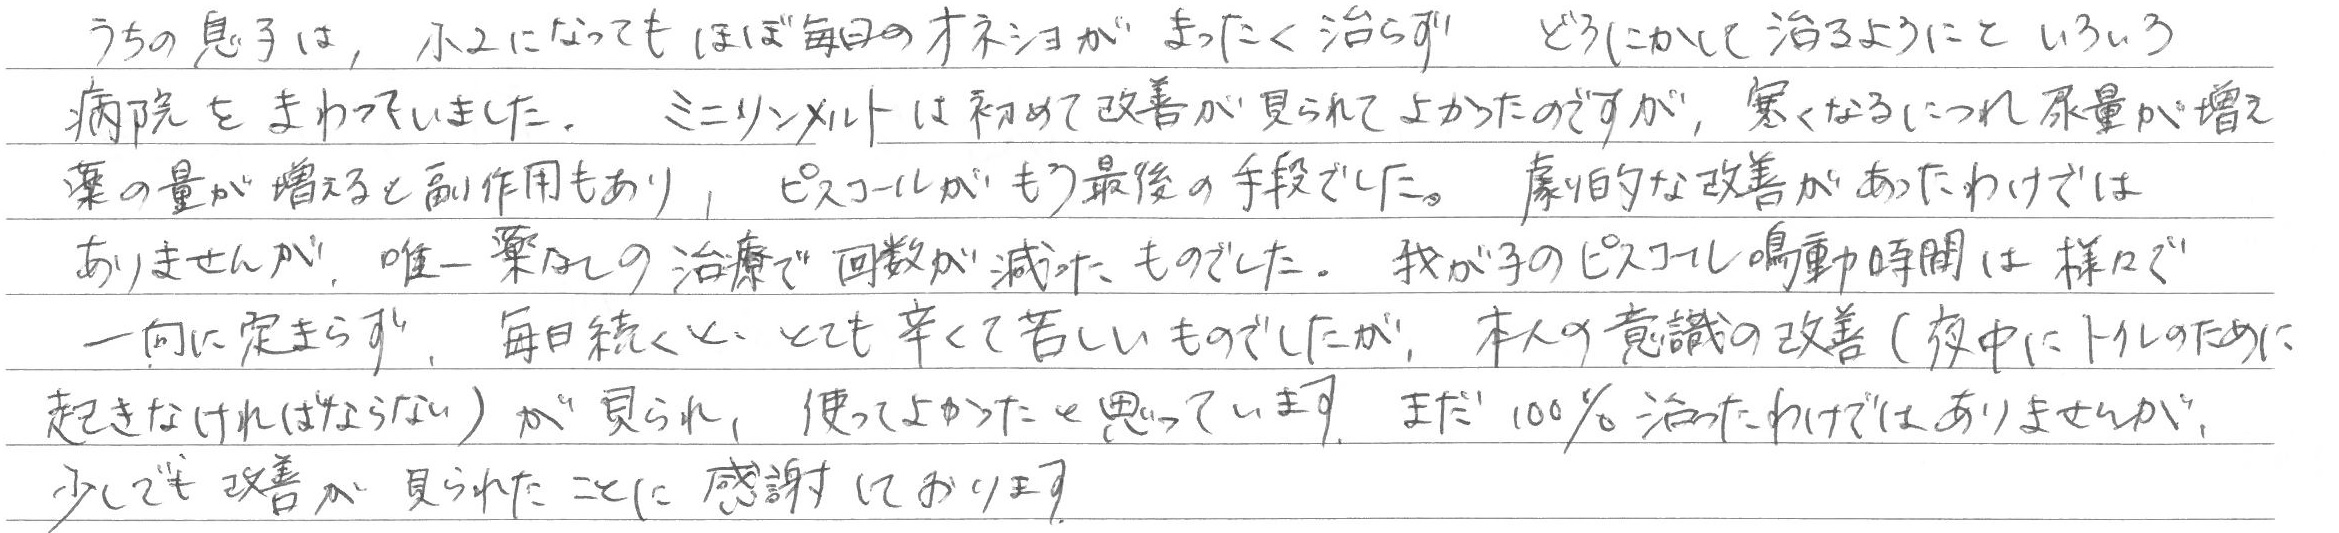 うちの息子は, 小2になってもほぼ毎日のオネショがまったく治らず どうにかして治るようにと いろいろ
病院をまわっていました. ミニリンメルトは初めて改善が見られてよかったのですが, 寒くなるにつれ尿量が増え
薬の量が増えると副作用もあり, ピスコールがもう最後の手段でした。 劇的な改善があったわけでは
ありませんが, 唯一薬なしの治療で回数が減ったものでした. 我が子のピスコール鳴動時間は様々で
一向に定まらず, 毎日続くと、とても辛くて苦しいものでしたが, 本人の意識の改善(夜中にトイレのために
起きなければならない)が見られ, 使ってよかったと思っています. まだ100%治ったわけではありませんが,
少しでも改善が見られたことに感謝しております.